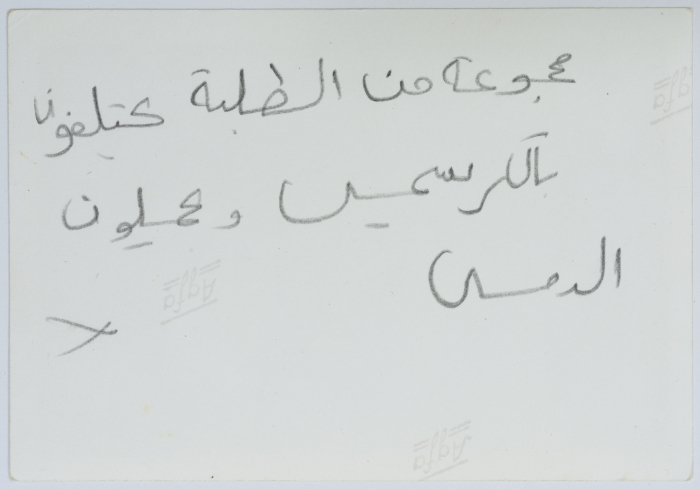 مجموعة من الطلبة يحتفلون
بالكريسمس ويحملون
الدمى
Agfa
Agfa
Agfa